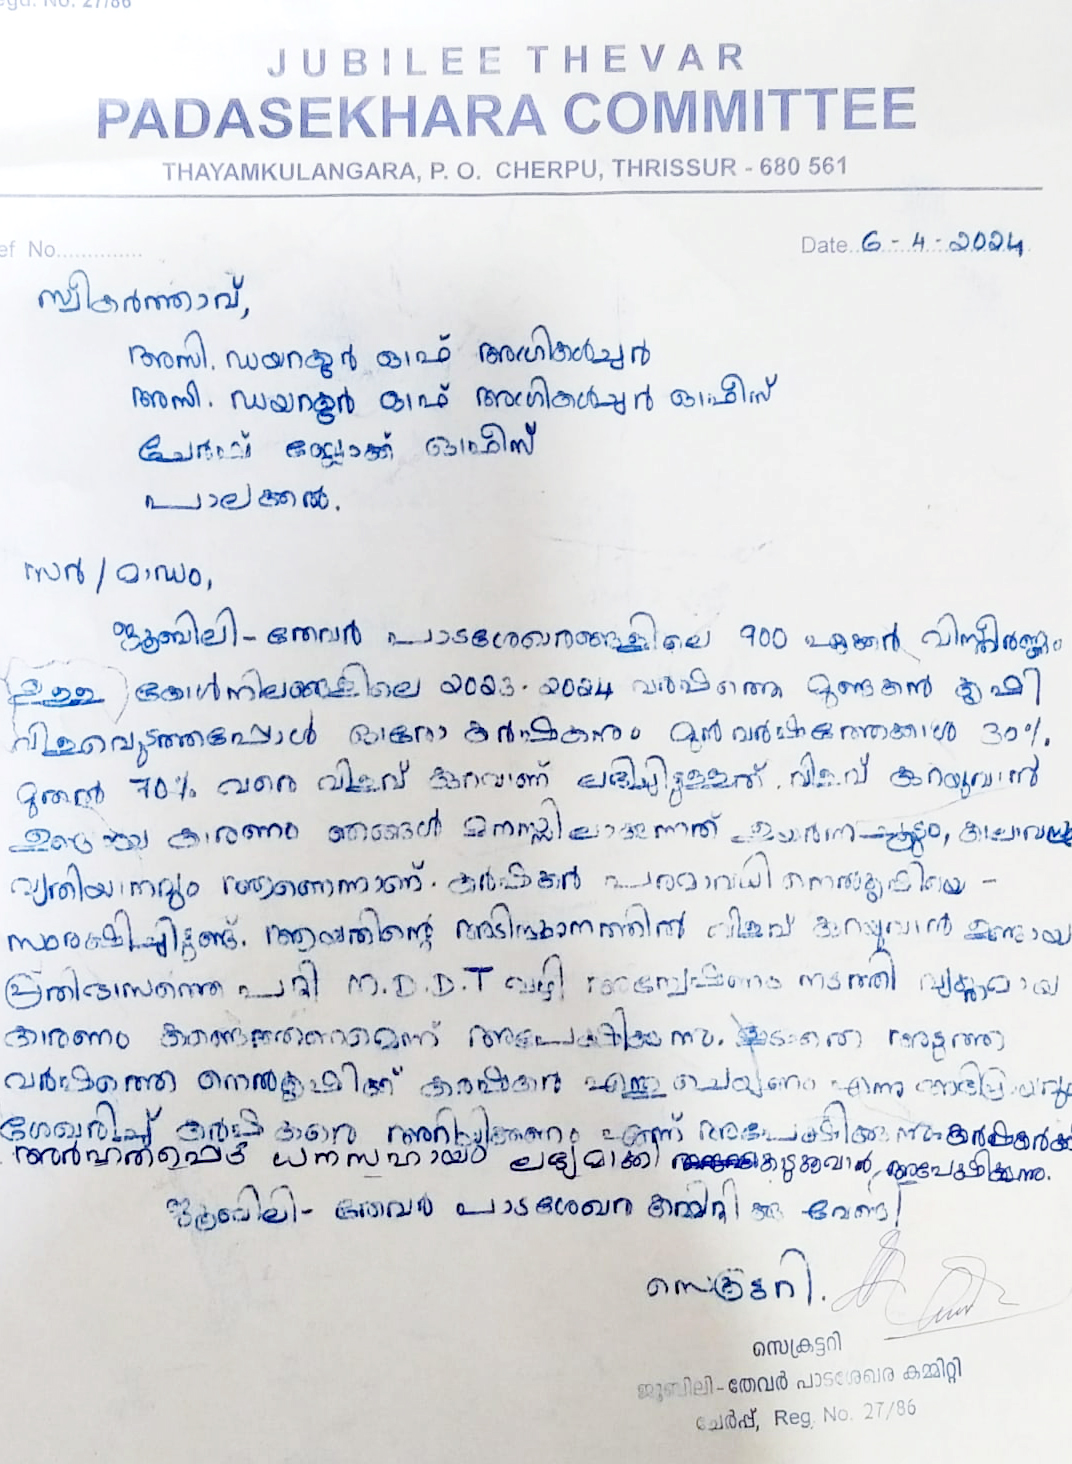 Regd. No. 27/86
JUBILEE THEVAR
PADASEKHARA COMMITTEE
THAYAMKULANGARA, P. O. CHERPU, THRISSUR - 680 561
ef No..............
Date..6 - 4 - 2024
സ്വീകർത്താവ്,
അസി. ഡയറക്ടർ ഓഫ് അഗ്രികൾച്ചർ
അസി. ഡയറക്ടർ ഓഫ് അഗ്രികൾച്ചർ ഓഫീസ്
ചേർപ്പ് ബ്ലോക്ക് ഓഫീസ്
പാലക്കൽ.
സർ / മാഡം,
ജൂബിലി - തേവർ പാടശേഖരങ്ങളിലെ 900 ഏക്കർ വിസ്തീർണ്ണം
ഉള്ള കോൾനിലങ്ങളിലെ 2023-2024 വർഷത്തെ മുണ്ടകൻ കൃഷി
വിളവെടുത്തപ്പോൾ ഓരോ കർഷകനും മുൻ വർഷത്തേക്കാൾ 30%
മുതൽ 70% വരെ വിളവ് കുറവാണ് ലഭിച്ചിട്ടുള്ളത്. വിളവ് കുറയുവാൻ
ഉണ്ടായ കാരണം ഞങ്ങൾ മനസ്സിലാക്കുന്നത് ഉയർന്ന ചൂടും, കാലാവസ്ഥ
വ്യതിയാനവും ആണെന്നാണ്. കർഷകർ പരമാവധി നെൽകൃഷിയെ -
സംരക്ഷിച്ചിട്ടുണ്ട്. ആയതിന്റെ അടിസ്ഥാനത്തിൽ വിളവ് കുറയുവാൻ ഉണ്ടായ
പ്രതിഭാസത്തെ പറ്റി M.D.D.T വഴി അന്വേഷണം നടത്തി വ്യക്തമായ
കാരണം കണ്ടെത്തണമെന്ന് അപേക്ഷിക്കുന്നു. കൂടാതെ അടുത്ത
വർഷത്തെ നെൽകൃഷിക്ക് കർഷകർ എന്തു ചെയ്യണം എന്നു അഭിപ്രായവും
ശേഖരിച്ച് കർഷകരെ അറിയിക്കണം എന്ന് അപേക്ഷിക്കുന്നു. കർഷകർക്ക്
അർഹതപ്പെട്ട ധനസഹായം ലഭ്യമാക്കി കിട്ടുവാൻ അപേക്ഷിക്കുന്നു.
ജൂബിലി - തേവർ പാടശേഖര കമ്മിറ്റി ക്കു വേണ്ടി
സെക്രട്ടറി.
സെക്രട്ടറി
ജൂബിലി-തേവർ പാടശേഖര കമ്മിറ്റി
ചേർപ്പ്, Reg. No. 27/86